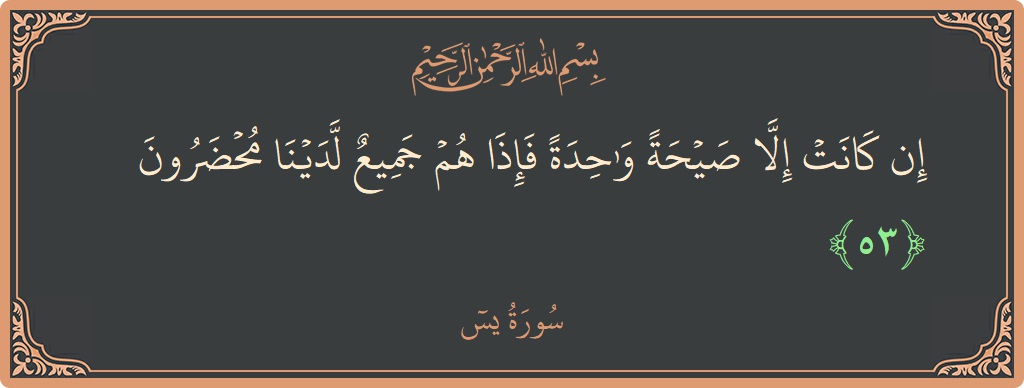 بِسْمِ اللَّهِ الرَّحْمَٰنِ الرَّحِيمِ
إِن كَانَتْ إِلَّا صَيْحَةً وَٰحِدَةً فَإِذَا هُمْ جَمِيعٌ لَّدَيْنَا مُحْضَرُونَ
﴿٥٣﴾
سُورَةُ يسٓ